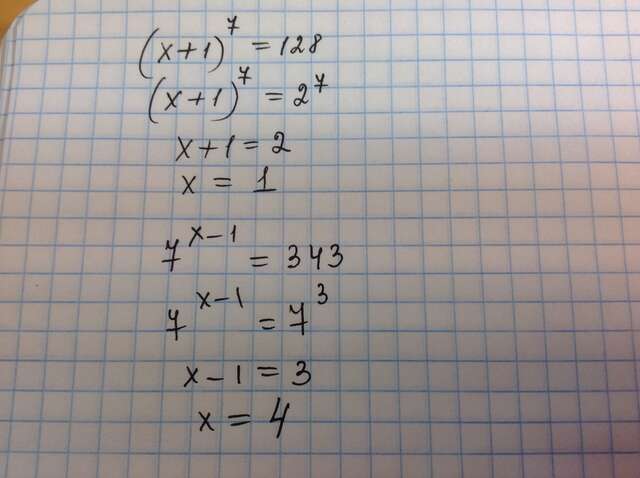 (x+1)⁷ = 128
(x+1)⁷ = 2⁷
x+1 = 2
x = 1
7ˣ⁻¹ = 343
7ˣ⁻¹ = 7³
x-1 = 3
x = 4